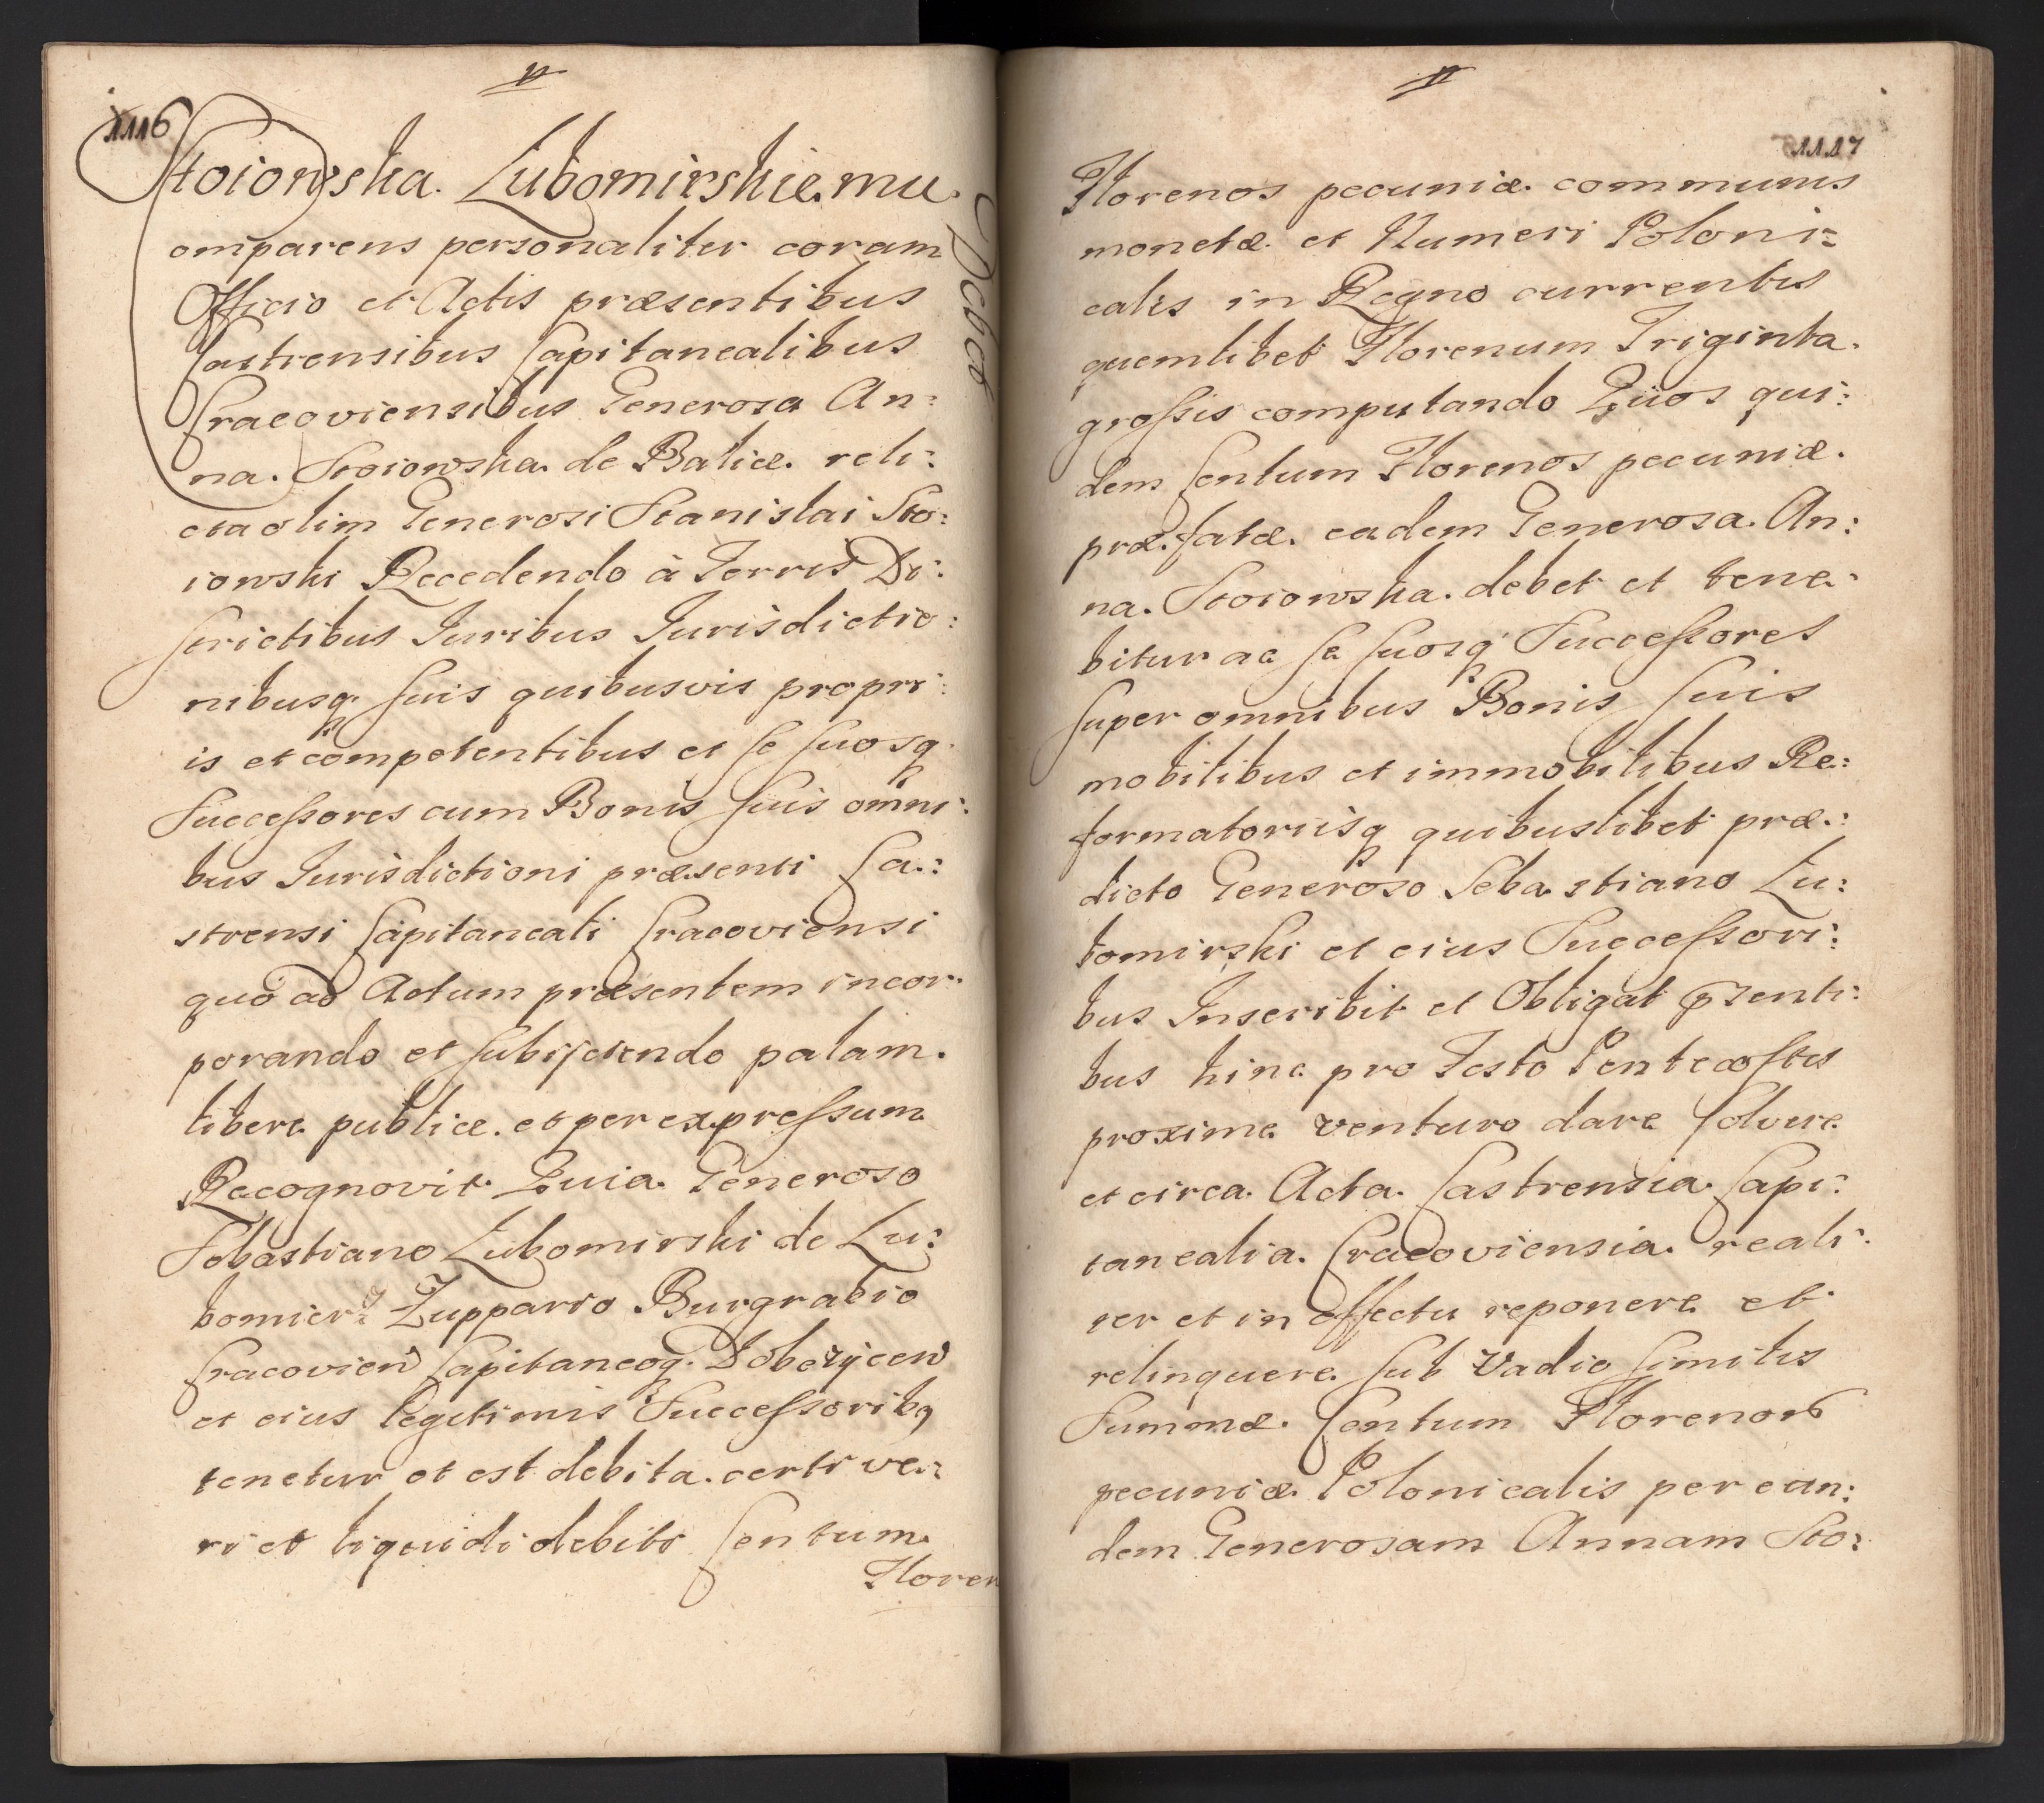 1116
Stoiowska Lubomirskiemu
Debet
Comparens personaliter coram
Officio et Actis præsentibus
Castrensibus Capitanealibus
Cracoviensibus Generosa An:
na Stoiowska de Balice reli:
cta olim Generosi Stanislai Sto:
iowski Recedendo à Terris Di:
strictibus Iuribus Iurisdictio:
nibusq suis quibusvis propri:
is et competentibus et se suosq
Successores cum Bonis suis omni:
bus Iurisdictioni præsenti Ca:
strensi Capitaneali Cracoviensi
quo ad Actum præsentem incor:
porando et subijciendo palam
libere publice et per expressum
Recognovit Quia Generoso
Sebastiano Lubomirski de Lu:
bomierz Zuppario Burgrabio
Cracovien Capitaneoq Dobczÿcen
et eius legitimis Successoribq
tenetur et est debita certi ve:
ri et liquidi debiti Centum
Floren
1117
Florenos pecuniæ communis
monetæ et Numeri Poloni:
calis in Regno currentis
quemlibet Florenum Triginta
grossis computando Quos qui:
dem Centum Florenos pecuniæ
præfatæ eadem Generosa An:
na Stoiowska debet et tene:
bitur ac se suosq Successores
super omnibus Bonis suis
mobilibus et immobilibus Re:
formatoriisq quibuslibet præ:
dicto Generoso Sebastiano Lu:
bomirski et eius Successori:
bus Inscribit et Obligat psenti:
bus hinc pro Festo Pentecostes
proxime venturo dare solvere
et circa Acta Castrensia Capi:
tanealia Cracoviensia reali:
ter et in effectu reponere et
relinquere sub Vadio similis
Summæ Centum Florenor
pecuniæ Polonicalis per ean:
dem Generosam Annam Sto: